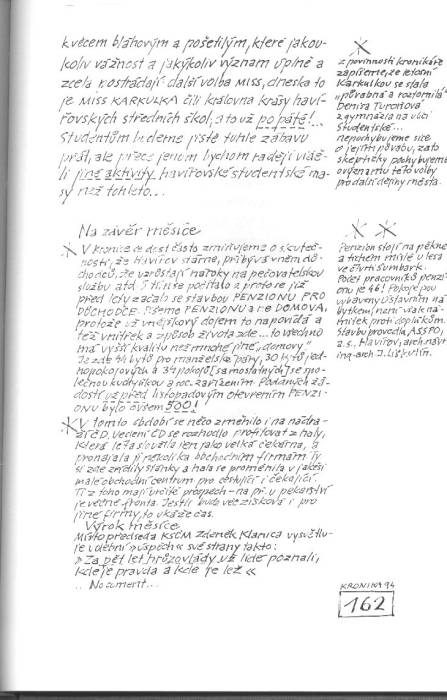 k věcem bláhovým a pošetilým, které jakou-
koliv vážnost a jakýkoliv význam úplně a
zcela postrádají další volba MISS, dneska to
je MISS KARKULKA čili královna krásy haví-
řovských středních škol, a to už po páté!...
Studentům budeme jistě tuhle zábavu
přát, ale přece jenom bychom raději vidě-
li jiné aktivity havířovské studentské ma-
sy než tohleto...
Z povinnosti kronikáře
zapíšeme, že letošní
Karkulkou se stala
"půvabná a roztomilá"
Denisa Turoňová
z gymnázia na ulici
Studentské...
nepochybujeme sice
o jejím půvabu, zato
skepticky pochybujeme
o významu této volby
pro další dějiny města.
Na závěr měsíce
V kronice se dost často zmiňujeme o skuteč-
nosti, že Havířov stárne, přibývá v něm dů-
chodců, že vzrůstají nároky na pečovatelskou
službu atd. S tím se počítalo a proto se již
před lety začalo se stavbou PENZIONU PRO
DŮCHODCE. Píšeme PENZIONU a ne DOMOVA,
protože už vnějškový dojem to napovídá a
též vnitřek a způsob života zde... to všechno
má vyšší kvalitu než mnohé jiné "domovy".
Je zde 44 bytů pro manželské páry, 30 bytů jed-
nopokojových a 34 pokojů (samostatných) se spo-
lečnou kuchyňkou a soc. zařízením. Podaných žá-
dostí už před listopadovým otevřením PENZI-
ONU bylo ovšem 500!
Penzion stojí na pěkném
a tichém místě u lesa
ve čtvrti Šumbark.
Počet pracovníků penzi-
onu je 46! Pokoje jsou
vybaveny ústavním ná-
bytkem, není však ná-
mitek proti doplňkům.
Stavbu provedla ASSPO,
a.s., Havířov, arch. návrh
ing. arch J.
V tomto období se něco změnilo i na nádra-
ží ČD. Vedení ČD se rozhodlo profitovat z haly,
která léta sloužila jen jako velká čekárna, a
pronajala ji několika obchodním firmám. Ty
si zde zřídily stánky a hala se proměnila v jakési
malé obchodní centrum pro cestující i čekající.
Ti z toho mají určitě prospěch - na př. u pekařství
je věčně fronta. Jestli bude vše zisková i pro
jiné firmy, to ukáže čas.
Výrok měsíce
Místopředseda KSČM Zdeněk Klanica vysvětlu-
je volební "úspěch" své strany takto:
"Za pět let hrůzovlády už lidé poznali,
kde je pravda a kde je lež"
.. No coment...
KRONIKA 94
162